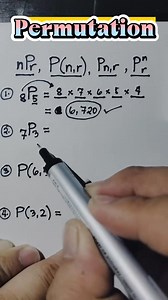 Permutation
nPr, P(n,r), Pn,r, Pⁿr
① 8P5 = 8 x 7 x 6 x 5 x 4
= 6,720 ✓
② 7P3 =
③ P(6,
④ P(3,2) =